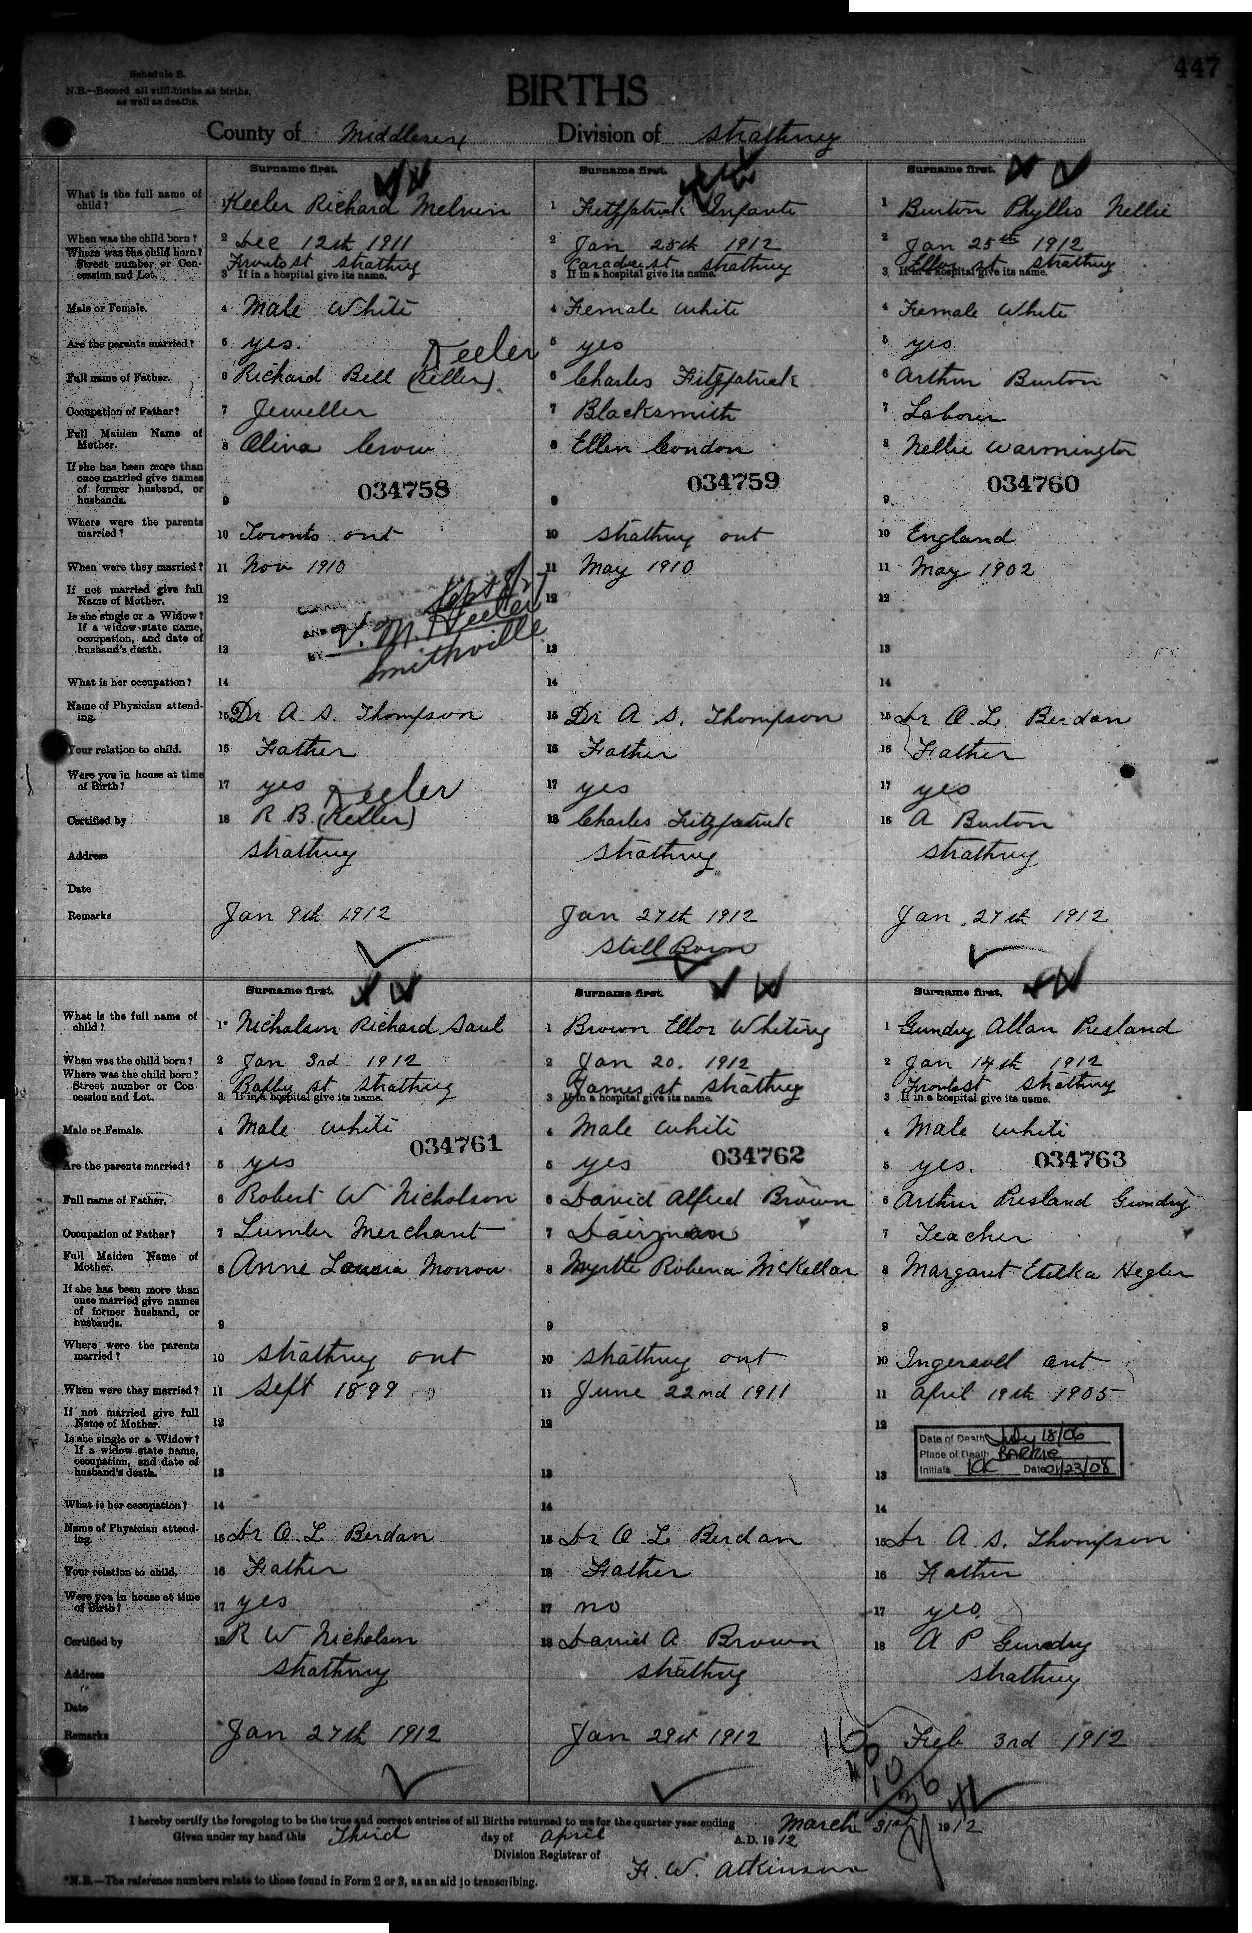 447
Schedule B.
N.B.—Record all still-births as births,
as well as deaths.
BIRTHS
County of Middlesex Division of Strathroy
Surname first. Surname first. Surname first.
What is the full name of
child?
1 Keeler Richard Melvin
1 Fitzpatrick Infante
1 Burton Phyllis Nellie
When was the child born?
2 Dec 12th 1911
2 Jan 25th 1912
2 Jan 25th 1912
Where was the child born?
Street number or Con-
cession and Lot.
Front st Strathroy
3 If in a hospital give its name.
Caradoc st Strathroy
3 If in a hospital give its name.
Ellor st Strathroy
3 If in a hospital give its name.
Male or Female.
4 Male White
4 Female White
4 Female White
Are the parents married?
5 yes.
5 yes
5 yes
Keeler
Full name of Father.
6 Richard Bell (Keller)
6 Charles Fitzpatrick
6 Arthur Burton
Occupation of Father?
7 Jeweller
7 Blacksmith
7 Laborer
Full Maiden Name of
Mother.
8 Oliva Crow
8 Ellen Condon
8 Nellie Warmington
If she has been more than
once married give names
of former husband, or
husbands.
9 034758
9 034759
9 034760
Where were the parents
married?
10 Toronto ont
10 Strathroy ont
10 England
When were they married?
11 Nov 1910
11 May 1910
11 May 1902
If not married give full
Name of Mother.
12
12
12
Is she single or a Widow?
If a widow state name,
occupation, and date of
husband's death.
13
13
13
Sept 8/21
BY V. M. Keeler
Smithville
What is her occupation?
14
14
14
Name of Physician attend-
ing.
15 Dr A. S. Thompson
15 Dr A S. Thompson
15 Dr O. L. Berdan
Your relation to child.
16 Father
16 Father
16 Father
Were you in house at time
of Birth?
17 yes
17 yes
17 yes
Keeler
Certified by
18 R. B. (Keller)
18 Charles Fitzpatrick
18 A Burton
Address
Strathroy
Strathroy
Strathroy
Date
Remarks
Jan 9th 1912
Jan 27th 1912
Jan 27th 1912
Still Born
Surname first. Surname first. Surname first.
What is the full name of
child?
1 Nicholson Richard Saul
1 Brown Ellor Whiting
1 Gundry Allan Presland
When was the child born?
2 Jan 3rd 1912
2 Jan 20. 1912
2 Jan 14th 1912
Where was the child born?
Street number or Con
cession and Lot.
st Strathroy
3 If in a hospital give its name.
James st Strathroy
3 If in a hospital give its name.
Front st Strathroy
3 If in a hospital give its name.
Male or Female.
4 Male White
4 Male White
4 Male White
034761
034762
034763
Are the parents married?
5 yes
5 yes
5 yes.
Full name of Father.
6 Robert W Nicholson
6 David Alfred Brown
6 Arthur Presland Gundry
Occupation of Father?
7 Lumber Merchant
7 Dairyman
7 Teacher
Full Maiden Name of
Mother.
8 Anne Morrow
8 Myrtle Robena McKellar
8 Margaret Etelka Hegler
If she has been more than
once married give names
of former husband, or
husbands.
9
9
9
Where were the parents
married?
10 Strathroy ont
10 Strathroy ont
10 Ingersoll ont
When were they married?
11 Sept 1899
11 June 22nd 1911
11 April 19th 1905
If not married give full
Name of Mother.
12
12
12
Is she single or a Widow?
If a widow state name,
occupation, and date of
husband's death.
13
13
13
Date of Death July 18/06
Place of Death BARRIE
Initials KK Date 01/23/08
What is her occupation?
14
14
14
Name of Physician attend-
ing.
15 Dr O. L Berdan
15 Dr O L Berdan
15 Dr A S. Thompson
Your relation to child.
16 Father
16 Father
16 Father
Were you in house at time
of Birth?
17 yes
17 no
17 yes
Certified by
18 R W Nicholson
18 David A Brown
18 A P Gundry
Address
Strathroy
Strathroy
Strathroy
Date
Remarks
Jan 27th 1912
Jan 29th 1912
Feb 3rd 1912
I hereby certify the foregoing to be the true and correct entries of all Births returned to me for the quarter year ending March 31st 1912
Given under my hand this Third day of April A.D. 1912
Division Registrar of
F. W. Atkinson
*N.B.—The reference numbers relate to those found in Form 2 or 3, as an aid to transcribing.